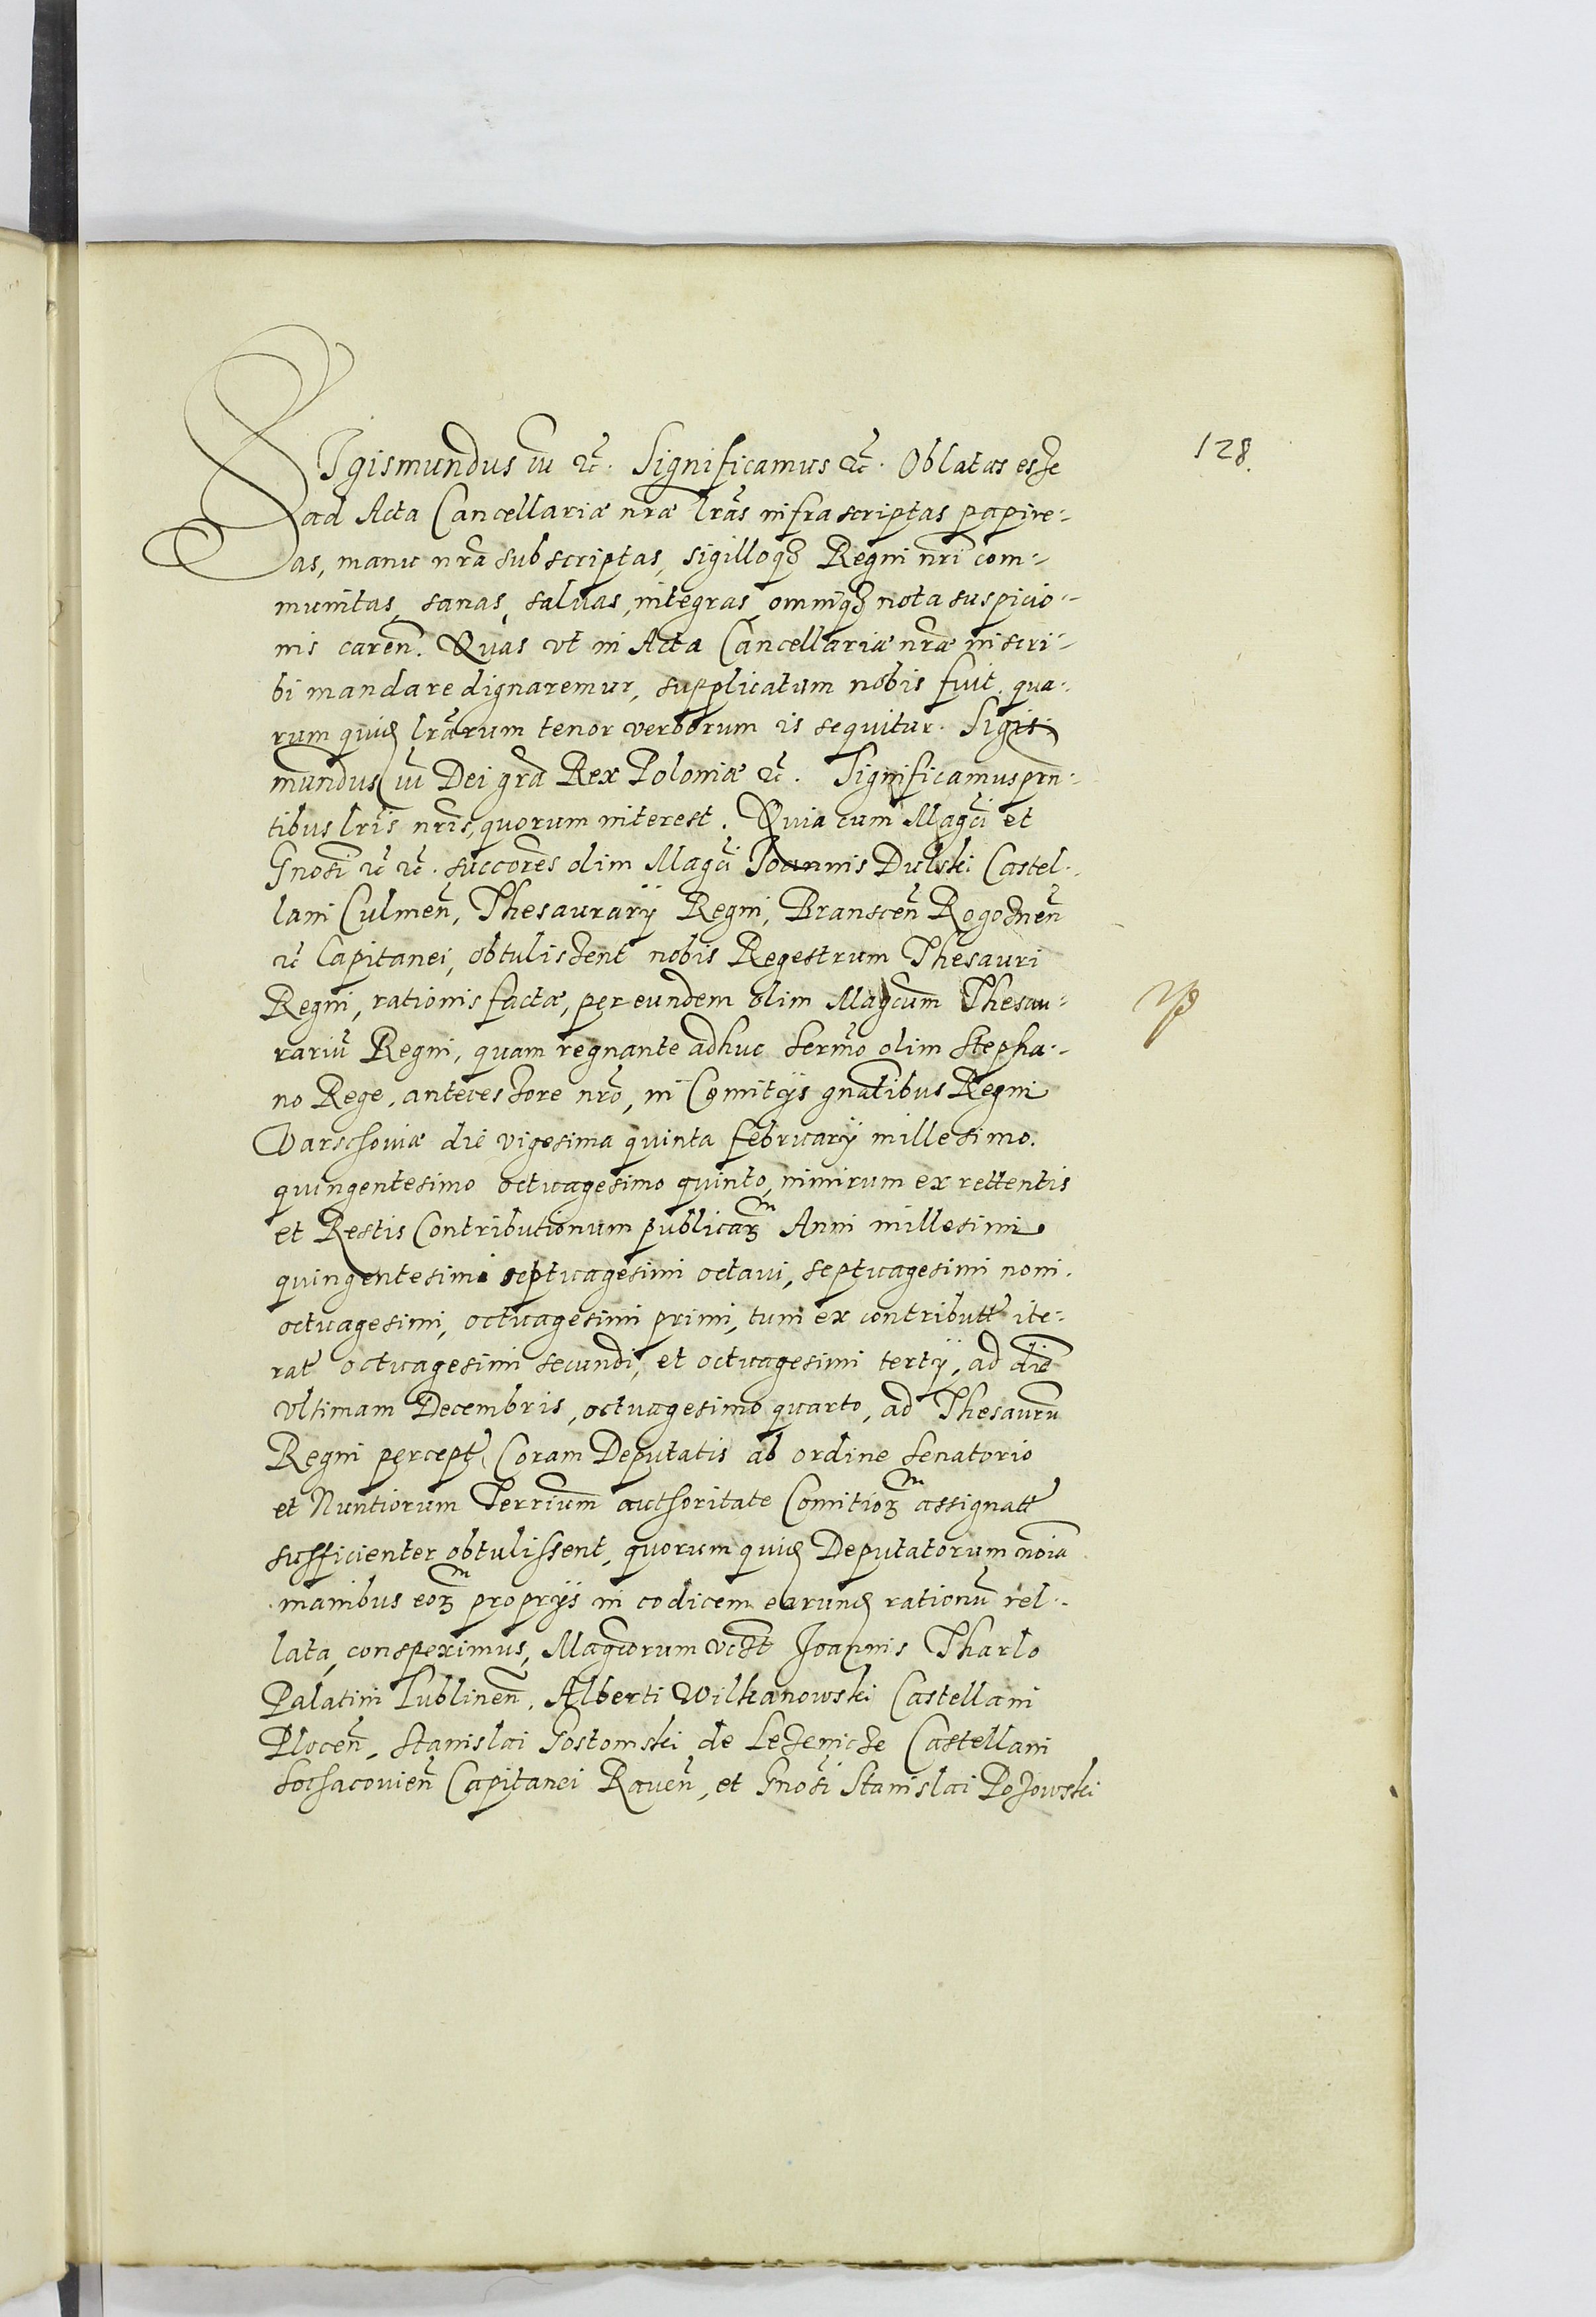 128.
SIgismundus iii etc̃. Significamus etc̃. Oblatas esse
ad Acta Cancellariæ nrӕ lrãs infrascriptas papire-
as, manu nrã subscriptas, sigilloqȝ Regni nrĩ com-
munitas, sanas, saluas, integras, omniqȝ nota suspicio-
nis careñ. Quas vt in Acta Cancellariæ nræ inscri-
bi mandare dignaremur, supplicatum nobis fuit. qua-
rum quid lrãrum tenor verborum is sequitur. Sigis-
mundus iii Dei grã Rex Poloniæ etc̃. Significamus prñ-
tibus lrĩs nrĩs, quorum interest. Quia cum Magcĩ et
Gnosĩ etc̃ etc̃. succorẽs olim Magcĩ Joannis Dulski Castel-
lani Culmeñ, Thesaurarij Regni, Bransceñ Rogozneñ
etc̃ Capitanei, obtulissent nobis Regestrum Thesauri
Regni, rationis factæ, per eundem olim Magcum Thesau-
rariũ Regni, quam regnante adhuc Sermõ olim Stepha-
no Rege, antecessore nrõ, in Comitijs gnalibus Regni
Varschoviæ die vigesima quinta februarij millesimo.
quingentesimo octuagesimo quinto, nimirum ex rettentis
et Restis Contributionum publicarȝm Anni millesimi
quingentesimi septuagesimi octaui, septuagesimi noni.
octuagesimi, octuagesimi primi, tum ex contributt ite-
rat octuagesimi secundi, et octuagesimi tertij, ad diẽ
vltimam Decembris, octuagesimo quarto, ad Thesaurũ
Regni percept, Coram Deputatis ab ordine Senatorio
et Nuntiorum Terrium authoritate Comitiorȝm assignatt
sufficienter obtulissent, quorum quid Deputatorum noĩa
manibus eorȝm proprijs in codicem earund rationũ rel-
lata, conspeximus, Magcorum vdzt Joannis Tharlo
Palatini Lublineñ, Alberti Wilkanowski Castellani
Ploceñ, Stanislai Gostomski de Lezenicze Castellani
Sochacouieñ Capitanei Raueñ, et Gnosĩ Stanislai Pozowski